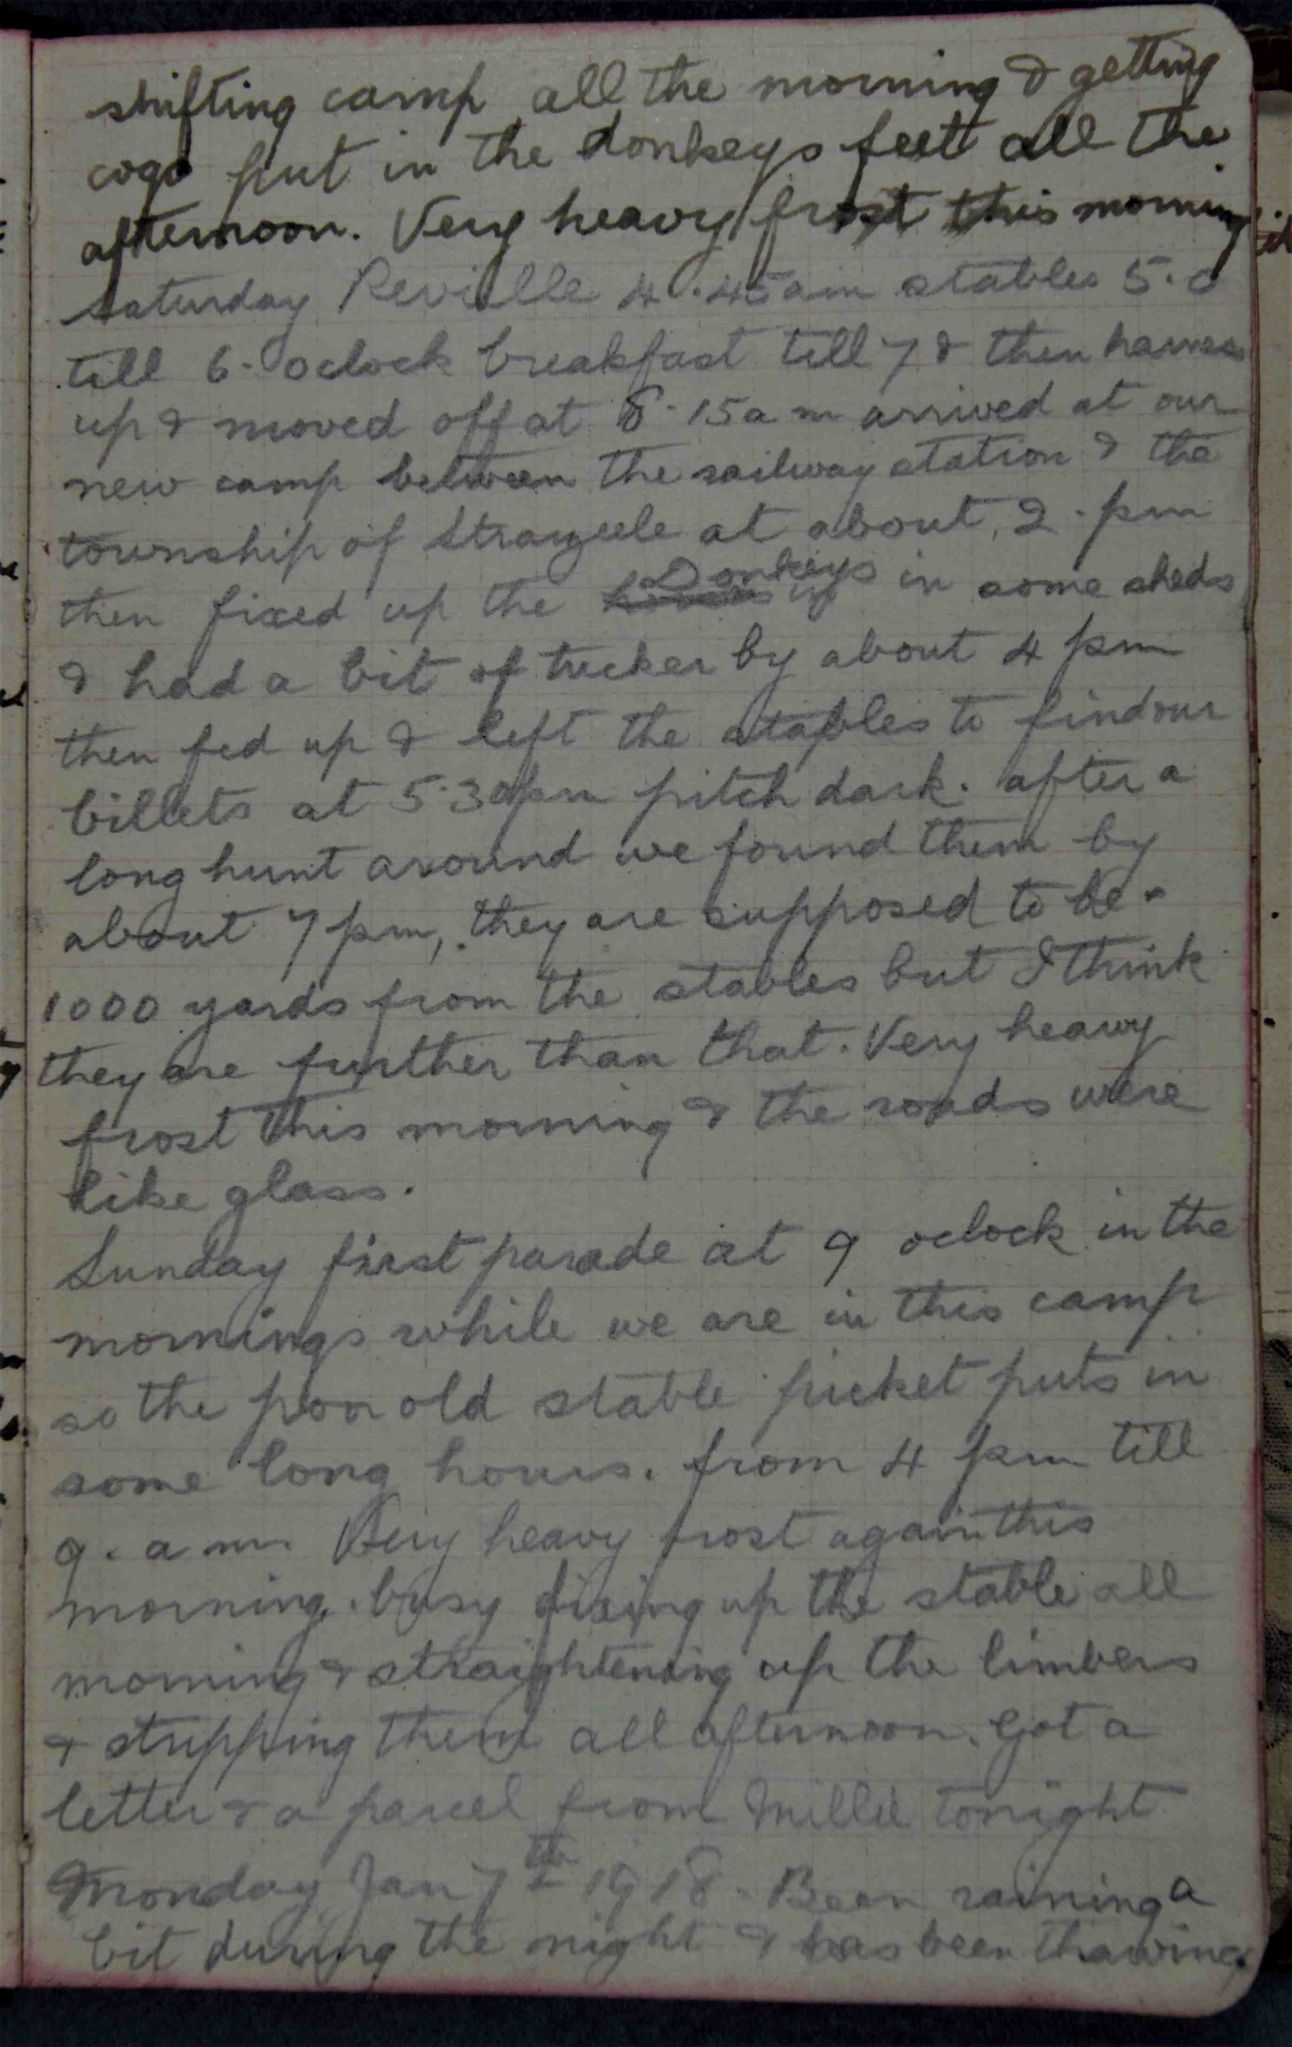 shifting camp all the morning & getting
cogs put in the donkeys feet all the
afternoon. Very heavy frost this morning
Saturday Reville 4.45am stables 5.0
till 6. oclock breakfast till 7 & then harness
up & moved off at 8.15am arrived at our
new camp between the railway station & the
township of Strazeele at about 2.pm
then fixed up the Donkeys in some sheds
& had a bit of tucker by about 4 pm
then fed up & left the stables to find our
billets at 5.30pm pitch dark. after a
long hunt around we found them by
about 7pm, they are supposed to be
1000 yards from the stables but I think
they are further than that. Very heavy
frost this morning & the roads were
like glass.
Sunday first parade at 9 oclock in the
mornings while we are in this camp
so the poor old stable picket puts in
some long hours. from 4 pm till
9. am. Very heavy frost again this
morning. busy fixing up the stable all
morning & straightening up the limbers
& stripping them all afternoon. Got a
letter & a parcel from Millie tonight
Monday Jan 7th 1918. Been raining a
bit during the night & has been thawing